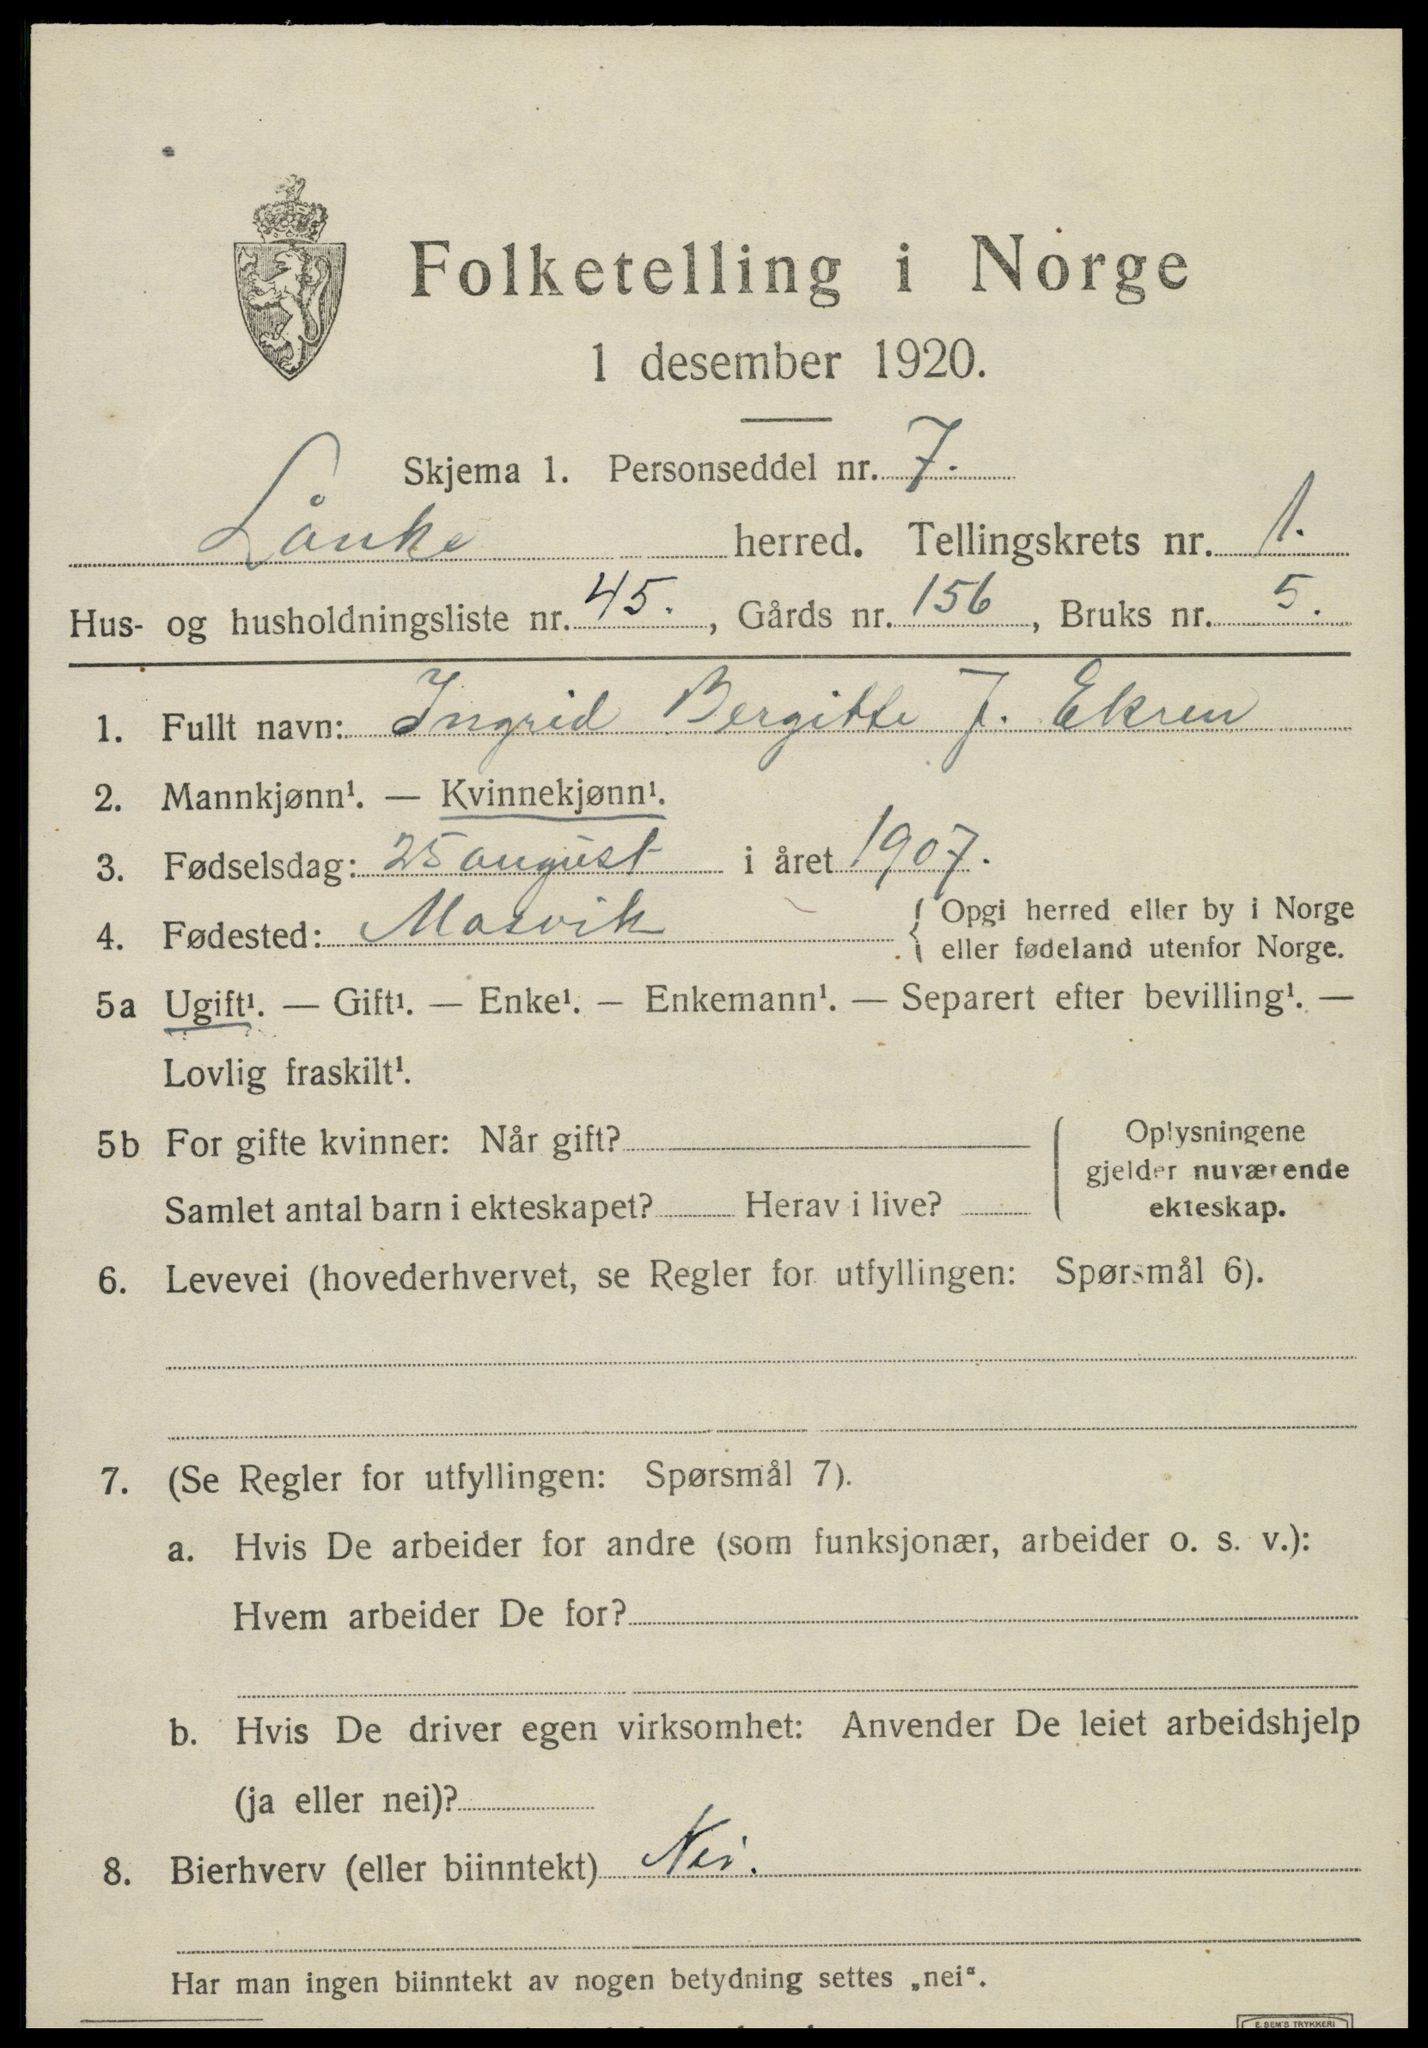 Folketelling i Norge
1 desember 1920.
Skjema 1. Personseddel nr. 7.
Lånke herred. Tellingskrets nr. 1.
Hus- og husholdningsliste nr. 45., Gårds nr. 156, Bruks nr. 5.
1. Fullt navn: Ingrid Bergitte J. Ekren
2. Mannkjønn¹. — Kvinnekjønn¹.
3. Fødselsdag: 25 august i året 1907.
4. Fødested: Mosvik { Opgi herred eller by i Norge
eller fødeland utenfor Norge.
5a Ugift¹. — Gift¹. — Enke¹. — Enkemann¹. — Separert efter bevilling¹. —
Lovlig fraskilt¹.
5b For gifte kvinner: Når gift?
Samlet antal barn i ekteskapet? Herav i live?
Oplysningene
gjelder nuværende
ekteskap.
6. Levevei (hovederhvervet, se Regler for utfyllingen: Spørsmål 6).
7. (Se Regler for utfyllingen: Spørsmål 7).
a. Hvis De arbeider for andre (som funksjonær, arbeider o. s. v.):
Hvem arbeider De for?
b. Hvis De driver egen virksomhet: Anvender De leiet arbeidshjelp
(ja eller nei)?
8. Bierhverv (eller biinntekt) Nei.
Har man ingen biinntekt av nogen betydning settes „nei".
E. SEM'S TRYKKERI